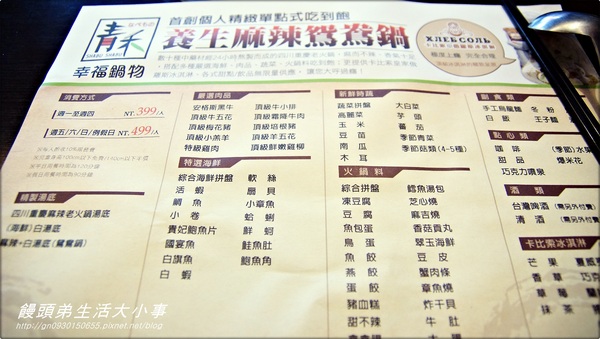 青禾
SHABU SHABU
幸福鍋物
首創個人精緻單點式吃到飽
養生麻辣鴛鴦鍋
ХЛЕБСОЛЬ
消費方式
週一至週四
NT.399/人
週五/六/日/例假日 NT.499/人
精製湯底
四川重慶麻辣老火鍋湯底
(海鮮)白湯底
麻辣+白湯底(鴛鴦鍋)
嚴選肉品
安格斯黑牛 頂級牛小排
頂級牛五花 頂級霜降牛肉
頂級梅花豬 頂級培根豬
頂級小羔羊 頂級羊五花
特級雞肉 頂級鮮嫩雞柳
特選海鮮
綜合海鮮拼盤 軟絲
活蝦 扇貝
鯛魚 小章魚
小卷 蛤蜊
貴妃鮑魚片 鮮蚵
國宴魚 鮭魚肚
白旗魚 鮑魚角
白蝦
新鮮時蔬
蔬菜拼盤 大白菜
高麗菜 芋頭
玉米 番茄
豆苗 季節菇類
南瓜 季節蔬菜(4-5種)
木耳
火鍋料
綜合拼盤 鱈魚湯包
凍豆腐 芝心燒
豆腐 麻吉燒
魚包蛋 香菇貢丸
鳥蛋 翠玉海鮮
魚餃 豆皮
燕餃 蟹肉條
蛋餃 章魚燒
豬血糕 炸干貝
甜不辣 牛肚
副食類
手工烏龍麵 冬粉
白飯 王子麵
點心類
咖啡 (季節)水果
甜品 爆米花
巧克力噴泉
酒類
台灣啤酒(需另外付費)
清酒 (需另外付費)
卡比索冰淇淋
芒果
香草 巧克
草莓
抹茶
饅頭弟生活大小事
http://gn0930150655.pixnet.net/blog